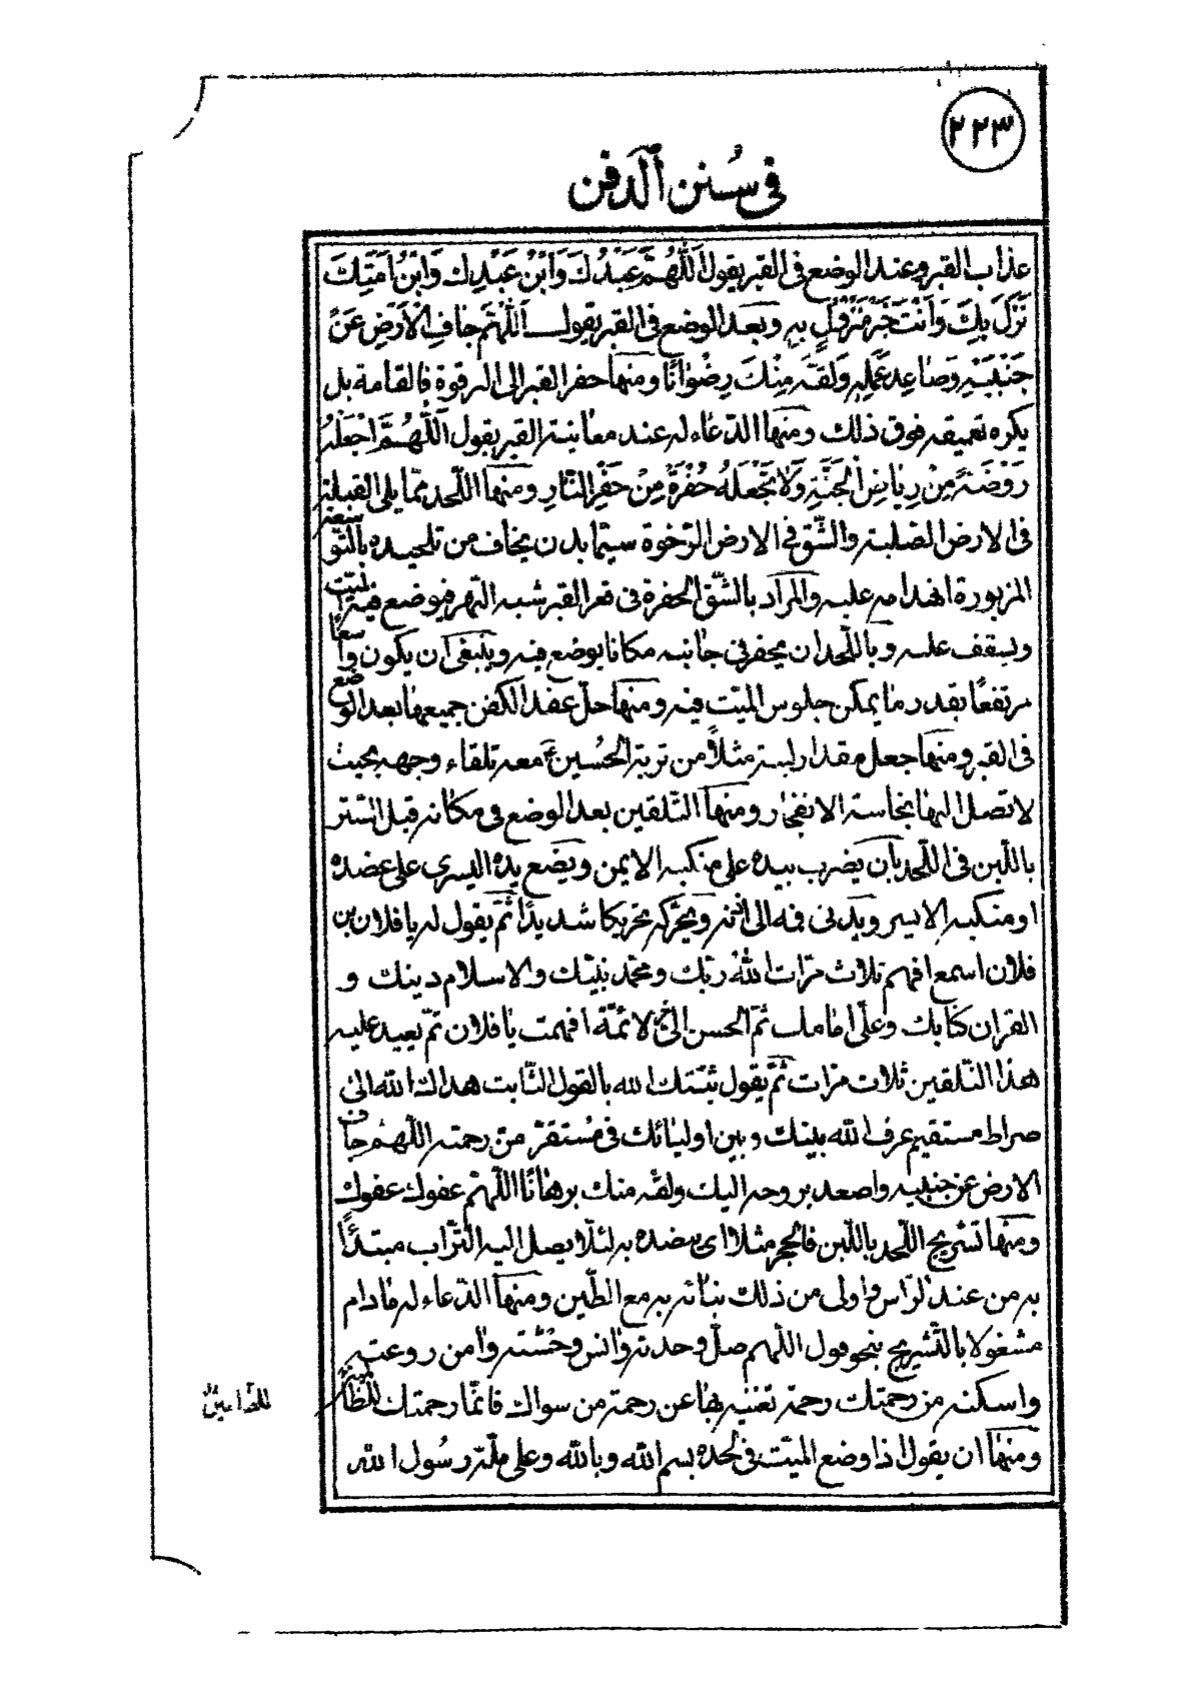 ٢٢٣
في سُنن الدفن
عذاب القبر وعند الوضع فى القبر يقول اَللّٰهُمَّ عَبْدُكَ وَابْنُ عَبْدِكَ وَابْنُ اَمَتِكَ
نَزَلَ بِكَ وَاَنْتَ خَيْرُ مَنْزُولٍ بِهِ وبعد الوضع فى القبر يقول اَللّٰهُمَّ جَافِ الْاَرْضَ عَنْ
جَنْبَيْهِ وَصَاعِدْ عَمَلَهُ وَلَقِّهِ مِنْكَ رِضْوَانًا ومنها حفر القبر الى الترقوة فالقامة بل
يكره تعميقه فوق ذلك ومنها الدّعاء له عند معاينة القبر يقول اَللّٰهُمَّ اجْعَلْهُ
رَوْضَةً مِنْ رِيَاضِ الْجَنَّةِ وَلَا تَجْعَلْهُ حُفْرَةً مِنْ حُفَرِ النَّارِ ومنها اللّحد ممّا يلى القبلة
فى الارض الصّلبة والشّق فى الارض الرّخوة سيّما بدن يخاف من تلحيده بالتّوسعة
المزبورة انهدامه عليه والمراد بالشّق الحفرة فى قعر القبر شبه النّهر فيوضع فيه الميّت
ويسقف عليه وباللّحد ان يحفر فى جانبه مكانا يوضع فيه وينبغى ان يكون واسعًا
مرتفعًا بقدر ما يمكن جلوس الميّت فيه ومنها حلّ عقد الكفن جميعها بعد الوضع
فى القبر ومنها جعل مقدار لبنة مثلاً من تربة الحُسين ع معه تلقاء وجهه بحيث
لا تصل اليها نجاسة الانفجار ومنها التّلقين بعد الوضع فى مكانه قبل السّتر
باللّبن فى اللّحد بان يضرب بيده على منكبه الايمن ويضع يده اليسرى على عضده
او منكبه الايسر ويدنى فمه الى اذنه ويحرّكه تحريكا شديدًا ثمّ يقول له يا فلان بن
فلان اسمع افهم ثلاث مرّات اللّٰه ربّك ومحمّد نبيّك والاسلام دينك و
القران كتابك وعلىّ امامك ثمّ الحسن الى اخر الائمّة افهمت يا فلان ثمّ يعيد عليه
هذا التّلقين ثلاث مرّات ثمّ يقول ثبّتك الله بالقول الثّابت هداك الله الى
صراط مستقيم عرف اللّه بينك وبين اوليائك فى مُستقرّ من رحمته اللّهمّ جاف
الارض عن جنبيه واصعد بروحه اليك ولقّه منك برهانًا اللّهمّ عفوك عفوك
ومنها تشريج اللّحد باللّبن فالحجر مثلا اى ينضده به لئلّا يصل اليه التّراب مبتدئًا
به من عند الرّاس واولى من ذلك بنائه به مع الطّين ومنها الدّعاء له مادام
مشغولا بالتّشريج بنحو قول اللّهمّ صل وحدته وانس وحشته وامن روعته
واسكنه من رحمتك رحمة تغنيه بها عن رحمة من سواك فانّما رحمتك للظّا
للظّاعنين
ومنها ان يقول اذا وضع الميّت فى لحده بسم اللّه وباللّه وعلى ملّة رسُول اللّه